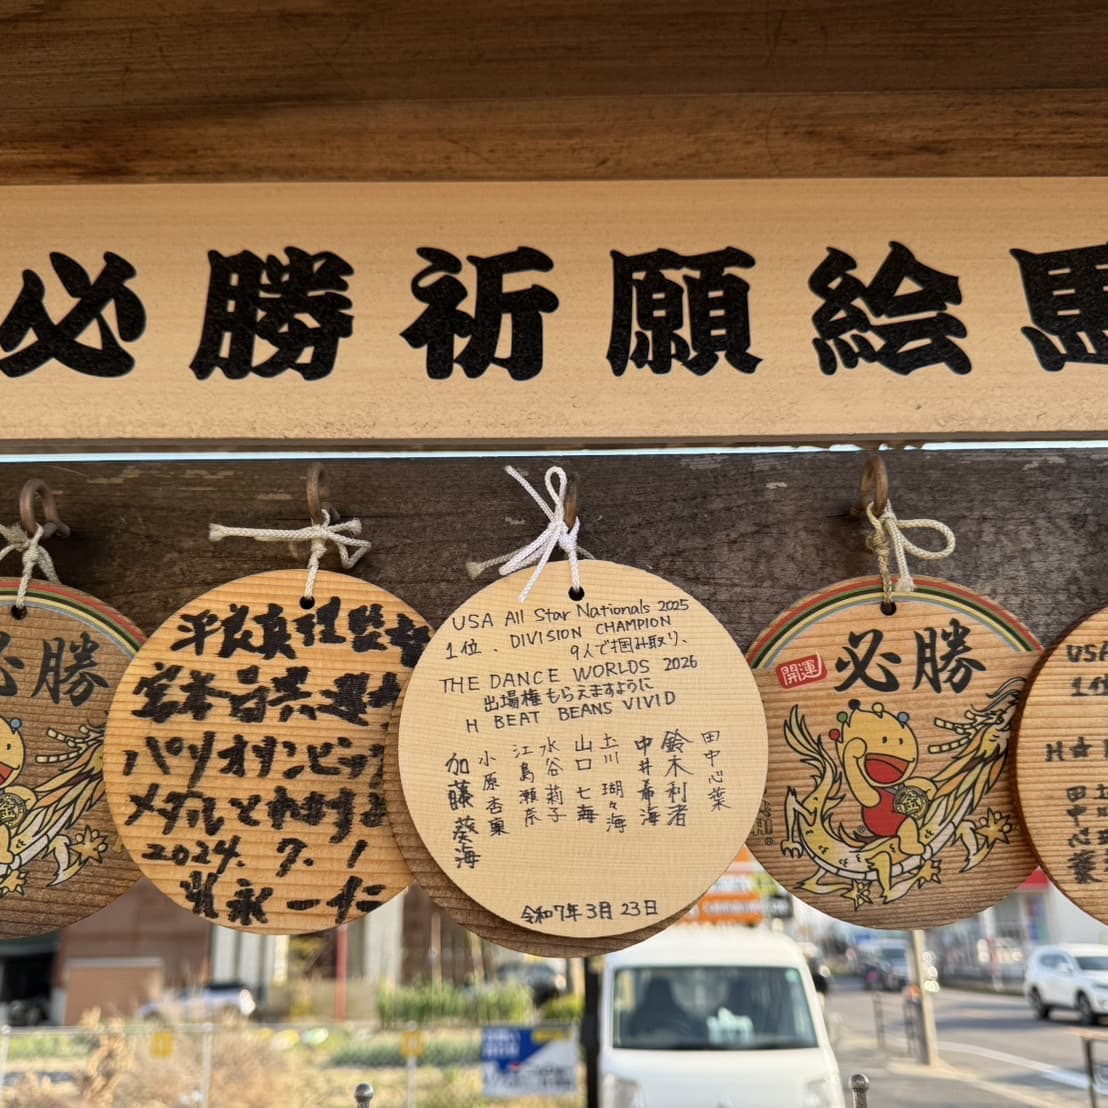 必勝祈願絵馬
必勝
平良真理監督
宮本 選
パリオリンピック
メダルとれますよ
2024. 7. 1
永 一仁
USA All Star Nationals 2025
1位、DIVISION CHAMPION
9人で掴み取り、
THE DANCE WORLDS 2026
出場権もらえますように
H BEAT BEANS VIVID
田中心葉
鈴木利者
中井希海
土川 瑚々海
山口 七海
水谷莉子
江島瀬奈
小原杏東
加藤葵海
令和7年3月23日
開運
必勝
USA
1位
H★
田中心葉